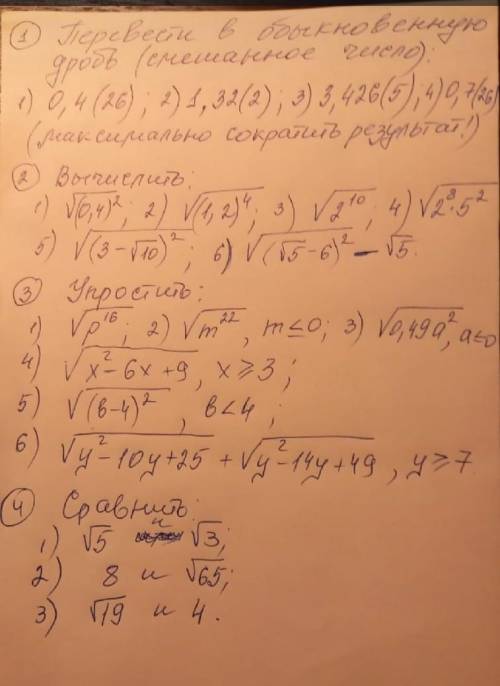 ① Перевести в обыкновенную
дробь (смешанное число):
1) 0,4(26); 2) 1,32(2); 3) 3,426(5); 4) 0,7(26)
(максимально сократить результат!)
② Вычислить:
1) √(0,4)²; 2) √(1,2)⁴; 3) √2¹⁰; 4) √2⁸·5²
5) √(3-√10)²; 6) √(√5-6)² - √5.
③ Упростить:
1) √p¹⁶; 2) √m²², m≤0; 3) √0,49a², a≤0
4) √x²-6x+9, x≥3;
5) √(в-4)², в<4;
6) √y²-10y+25 + √y²-14y+49, y≥7
④ Сравнить:
1) √5 и √3;
2) 8 и √65;
3) √19 и 4.